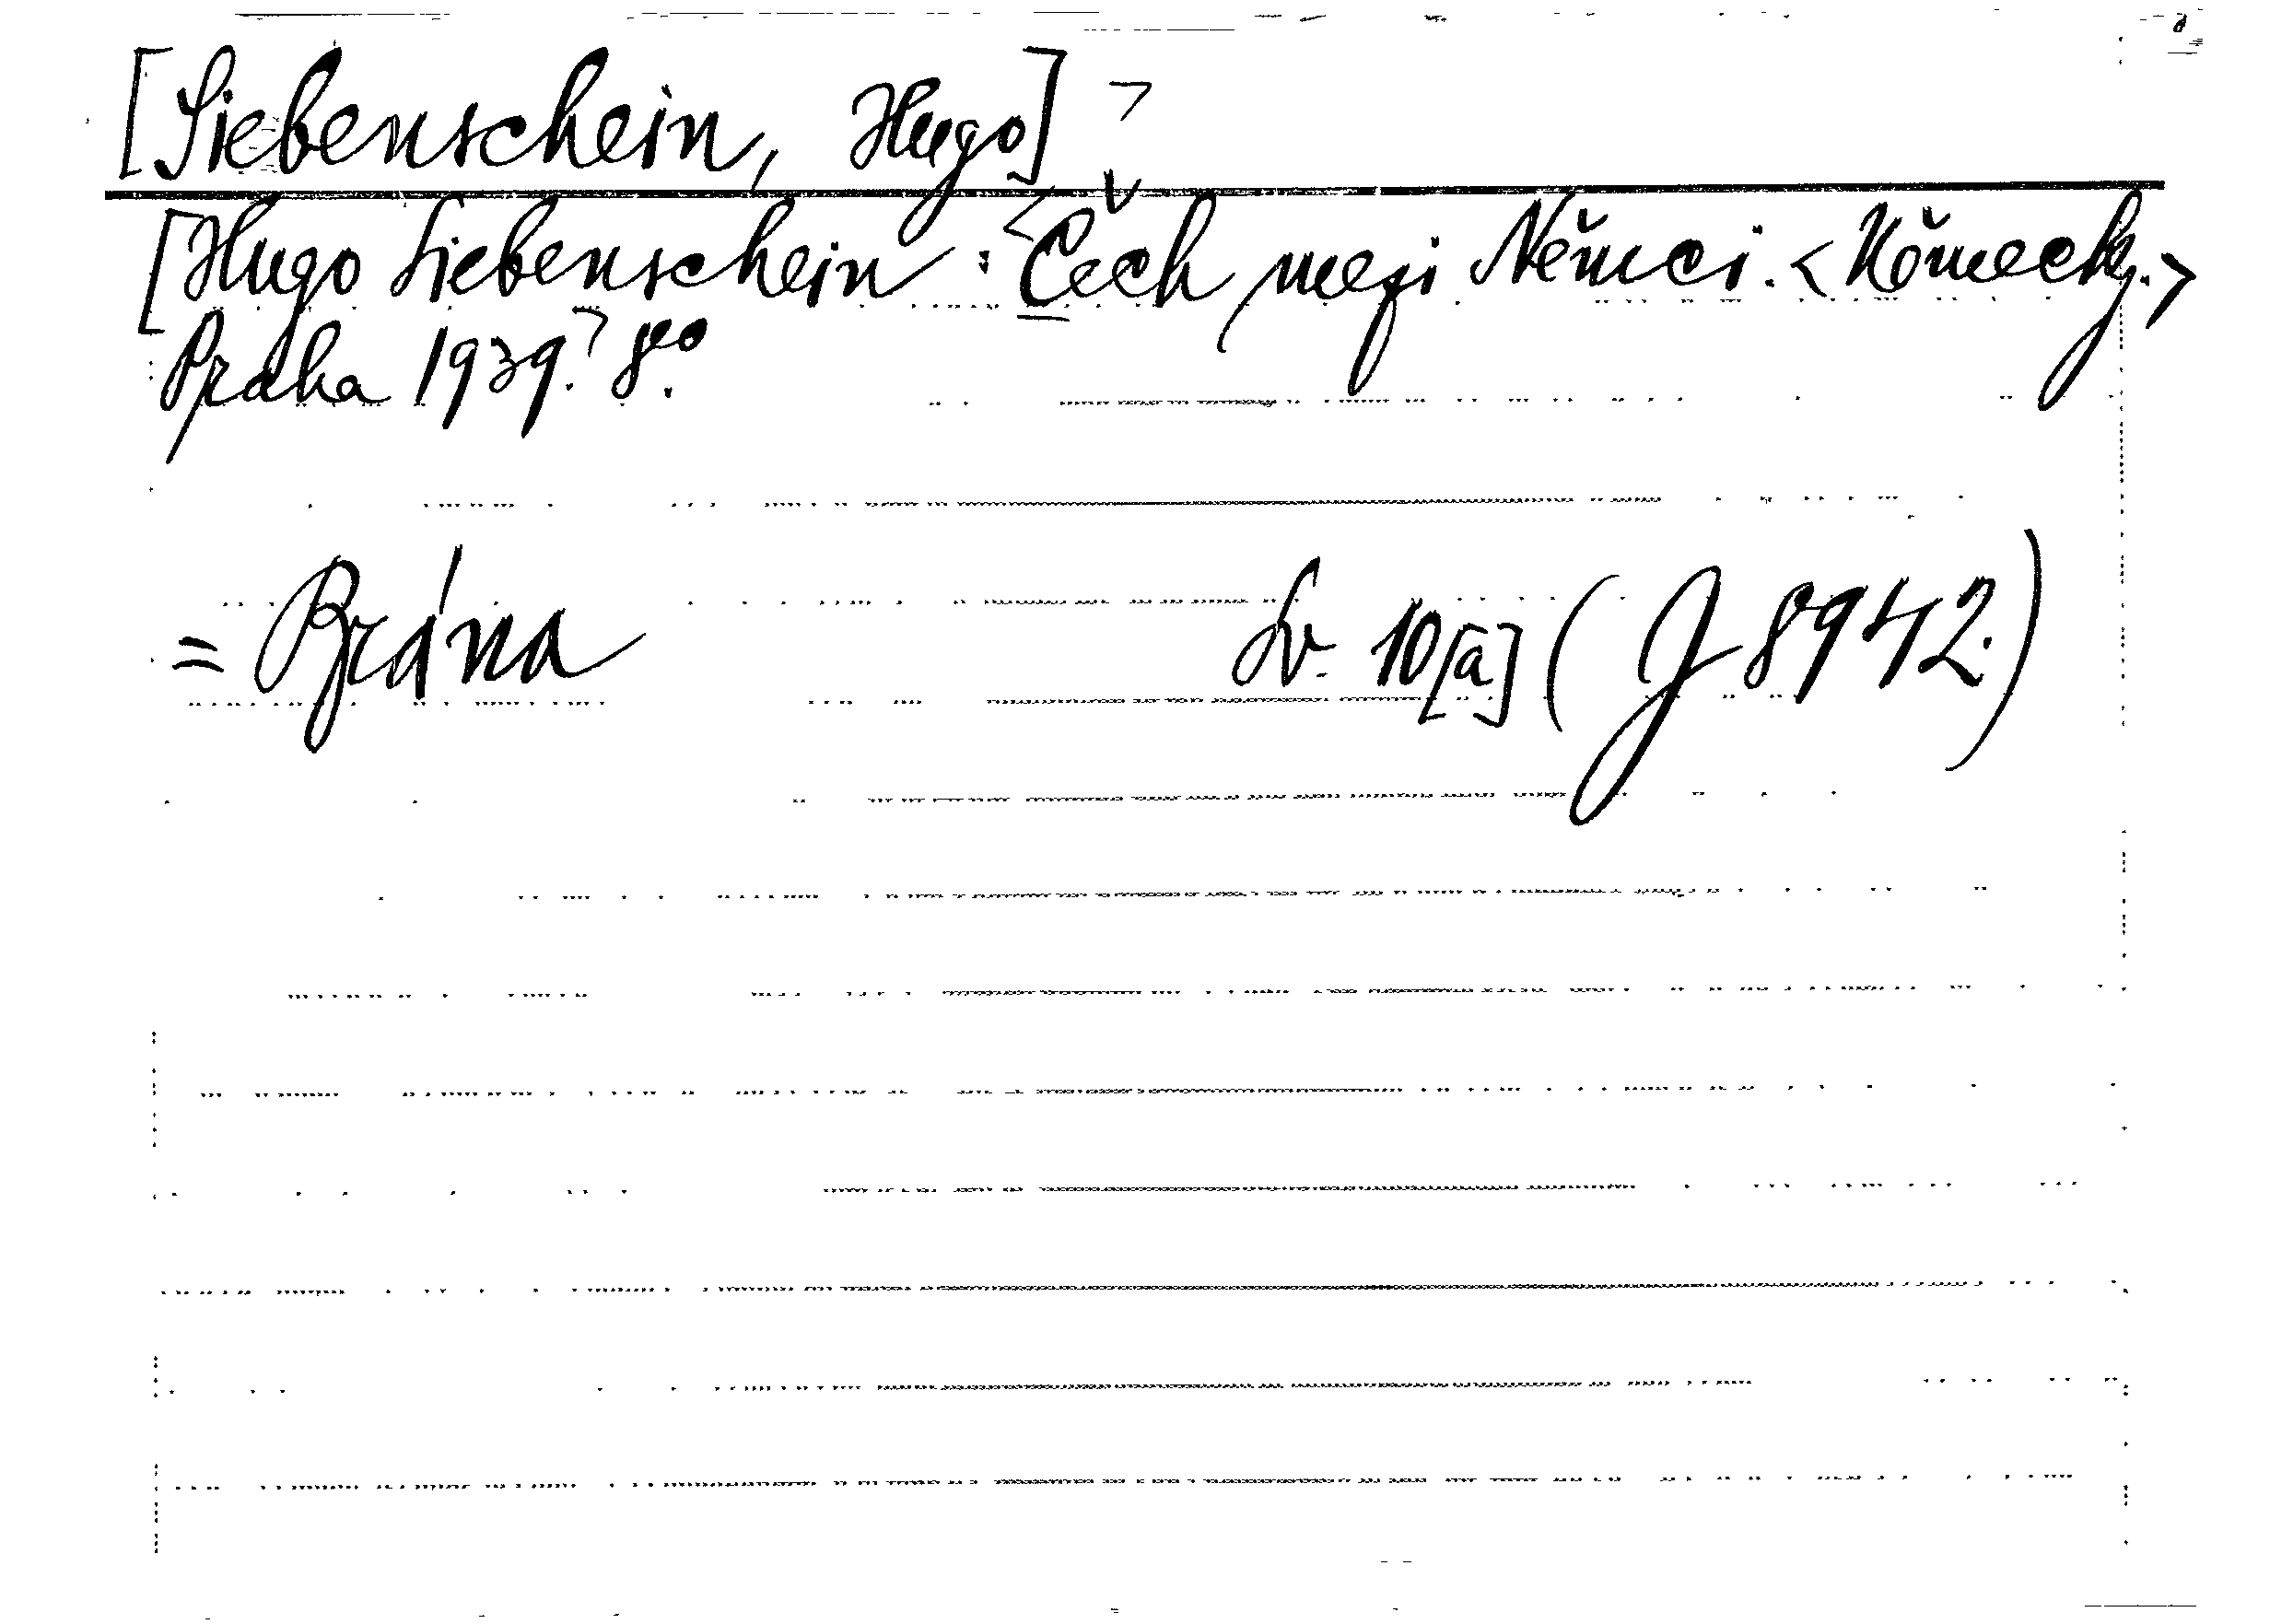 [Siebenschein, Hugo] ⌝
[Hugo Siebenschein: <Čech mezi Němci. <Německy.>
Praha 1939.⌝ 8vo.
= Brána Sv. 10[a] (J 8942.)